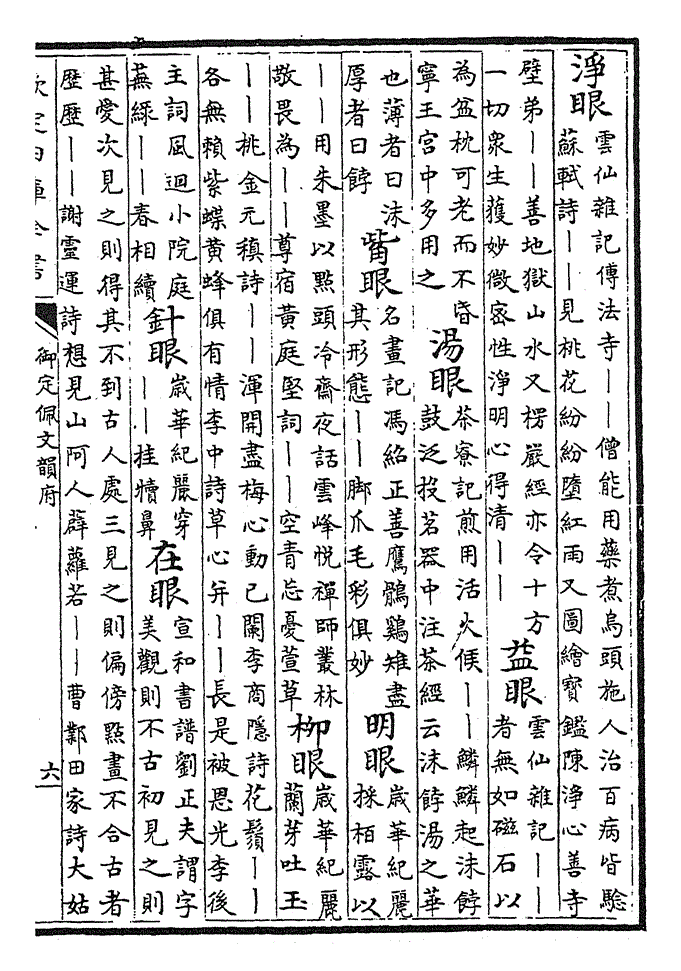 淨眼
雲仙雜記傅法寺丨丨僧能用藥煮烏頭施人治百病皆驗
蘇軾詩丨丨見桃花紛紛墮紅雨又圖繪寳鑑陳淨心善寺
壁弟丨丨善地獄山水又楞嚴經亦令十方
一切衆生獲妙微密性淨明心得清丨丨
益眼
雲仙雜記丨丨
者無如磁石以
為盆枕可老而不昏
寧王宫中多用之
湯眼
茶寮記煎用活火候丨丨鱗鱗起沫餑
鼓泛投茗器中注茶經云沫餑湯之華
也薄者曰沫
厚者曰餑
觜眼
名畫記馮紹正善鷹鶻鷄雉盡
其形態丨丨脚爪毛彩俱妙
明眼
歲華紀麗
採栢露以
丨丨用朱墨以點頭冷齋夜話雲峰悦禪師叢林
敬畏為丨丨尊宿黄庭堅詞丨丨空青忘憂萱草
柳眼
歲華紀麗
蘭芽吐玉
丨丨桃金元稹詩丨丨渾開盡梅心動已闌李商隱詩花鬚丨丨
各無賴紫蝶黄蜂俱有情李中詩草心并丨丨長是被恩光李後
主詞風迴小院庭
蕪緑丨丨春相續
針眼
歲華紀麗穿
丨丨挂犢鼻
在眼
宣和書譜劉正夫謂字
美觀則不古初見之則
甚愛次見之則得其不到古人處三見之則偏傍點畫不合古者
歴歴丨丨謝靈運詩想見山阿人薜蘿若丨丨曹鄴田家詩大姑
欽定四庫全書
御定佩文韻府
六